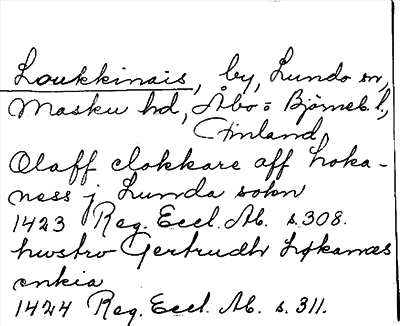 Loukkinais, by, Lundo sn,
Masku hd, Åbo = Björneb. l.,
Finland,
Olaff clokkare aff Loka-
ness j Lunda sokn
1423 Reg. Eccl. Ab. s. 308.
hwstro Gertrudh Løkanæs
enkia
1424 Reg. Eccl. Ab. s. 311.